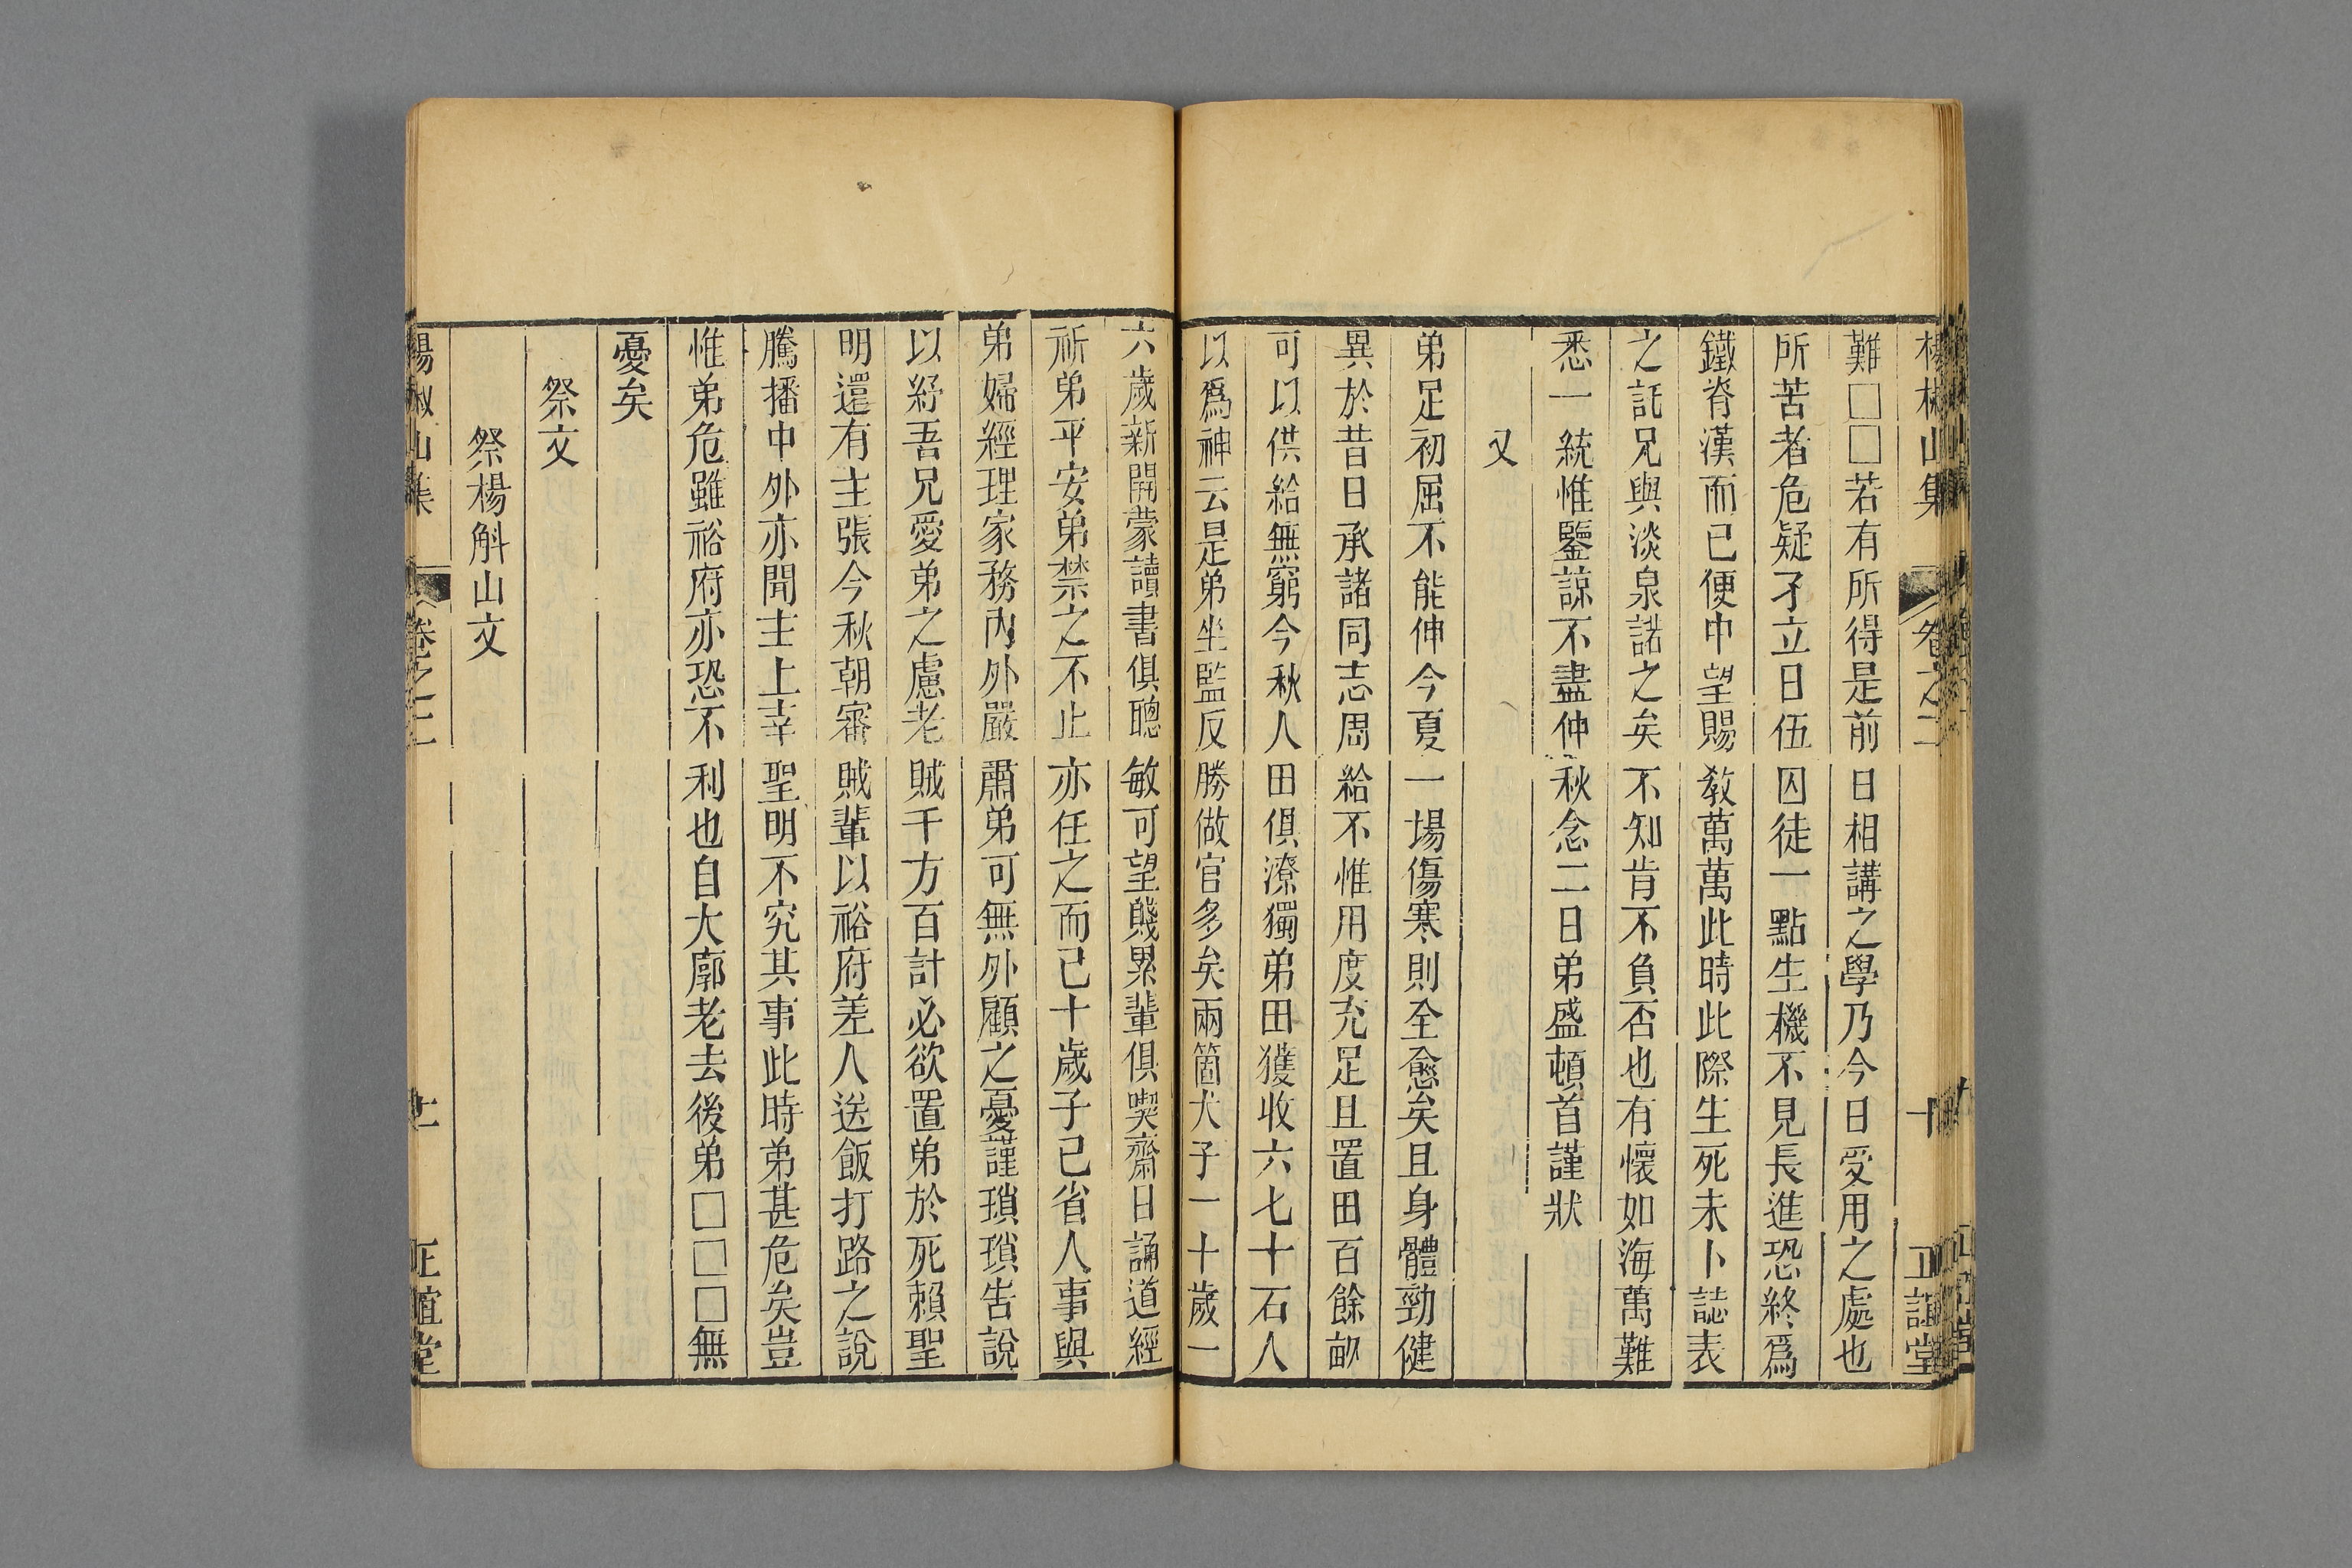 難□□若有所得是前日相講之學乃今日受用之處也
所苦者危疑孑立日伍囚徒一點生機不見長進恐終爲
鐵脊漢而已便中望賜敎萬萬此時此際生死未卜誌表
之託兄與淡泉諾之矣不知肯不負否也有懷如海萬難
悉一統惟鑒諒不盡仲秋念二日弟盛頓首謹狀
又
弟足初屈不能伸今夏一場傷寒則全愈矣且身體勁健
異於昔日承諸同志周給不惟用度充足且置田百餘畝
可以供給無窮今秋人田俱潦獨弟田獲收六七十石人
以爲神云是弟坐監反勝做官多矣兩箇犬子一十歲一
六歲新開蒙讀書俱聰敏可望賤累輩俱喫齋日誦道經
祈弟平安弟禁之不止亦任之而已十歲子已省人事與
弟婦經理家務內外嚴肅弟可無外顧之憂謹瑣瑣告說
以紓吾兄愛弟之慮老賊千方百計必欲置弟於死賴聖
明還有主張今秋朝審賊輩以裕府差人送飯打路之說
騰播中外亦聞主上幸聖明不究其事此時弟甚危矣豈
惟弟危雖裕府亦恐不利也自大廓老去後弟□□□無
憂矣
祭文
祭楊斛山文
楊椒山集 卷之二 十一 正誼堂